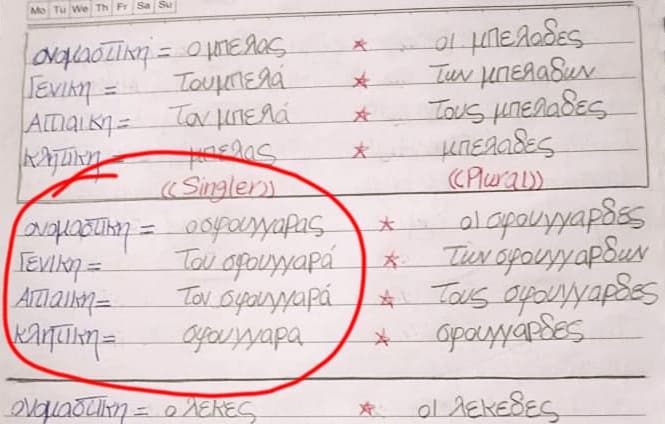 Mo Tu We Th Fr Sa Su
ονομαστικη = ο μπελας * οι μπελαδες
Γενικη = Του μπελά * Των μπελαδων
Αιτιαικη = Τον μπελά * Τους μπελαδες
κλητικη = μπελας * μπελαδες
((Singler)) ((Plural))
ονομαστικη = ο σφουγγαρας * οι σφουγγαρδες
Γενικη = Του σφουγγαρά * Των σφουγγαρδων
Αιτιαικη = Τον σφουγγαρά * Τους σφουγγαρδες
κλητικη = σφουγγαρα * σφουγγαρδες
ονομαστικη = ο λεκες * οι λεκεδες